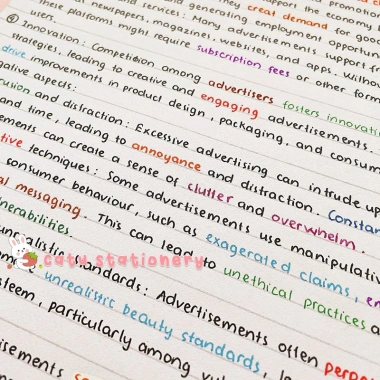 support the economy b
they creat demand for good
and generating employment opportun
and services: Many advertisements support fr
newspapers, magazines, websites, and apps. Witho
these platforms might require subscription fees or other form
users.
④ Innovation: Competition among advertisers fosters innovati
strategies, leading to creative and engaging advertisements.
drive improvements in product design, packaging, and consum
gative aspects:
rusion and distraction: Excessive advertising can intrude up
and time, leading to annoyance and distraction. Constan
ements can create a sense of clutter and overwhelm.
tive techniques: Some advertisements use manipulativ
consumer behaviour, such as exaggerated claims, e
al messaging. This can lead to unethical practices a
nerabilities.
unrealistic standards: Advertisements often perpe
unrealistic beauty standards, l
steem, particularly among vul
isements
caty stationery